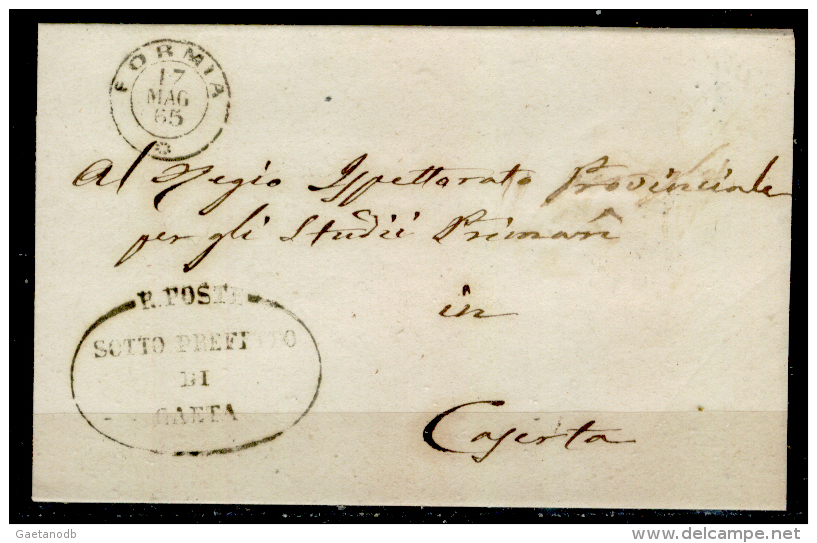 FORMIA
17
MAG
65
Al Regio Ispettorato Provinciale
per gli Studii Primarî
in
Caserta
R. POSTE
SOTTO PREFETTO
DI
GAETA
Gaetanodb
delcampe.net